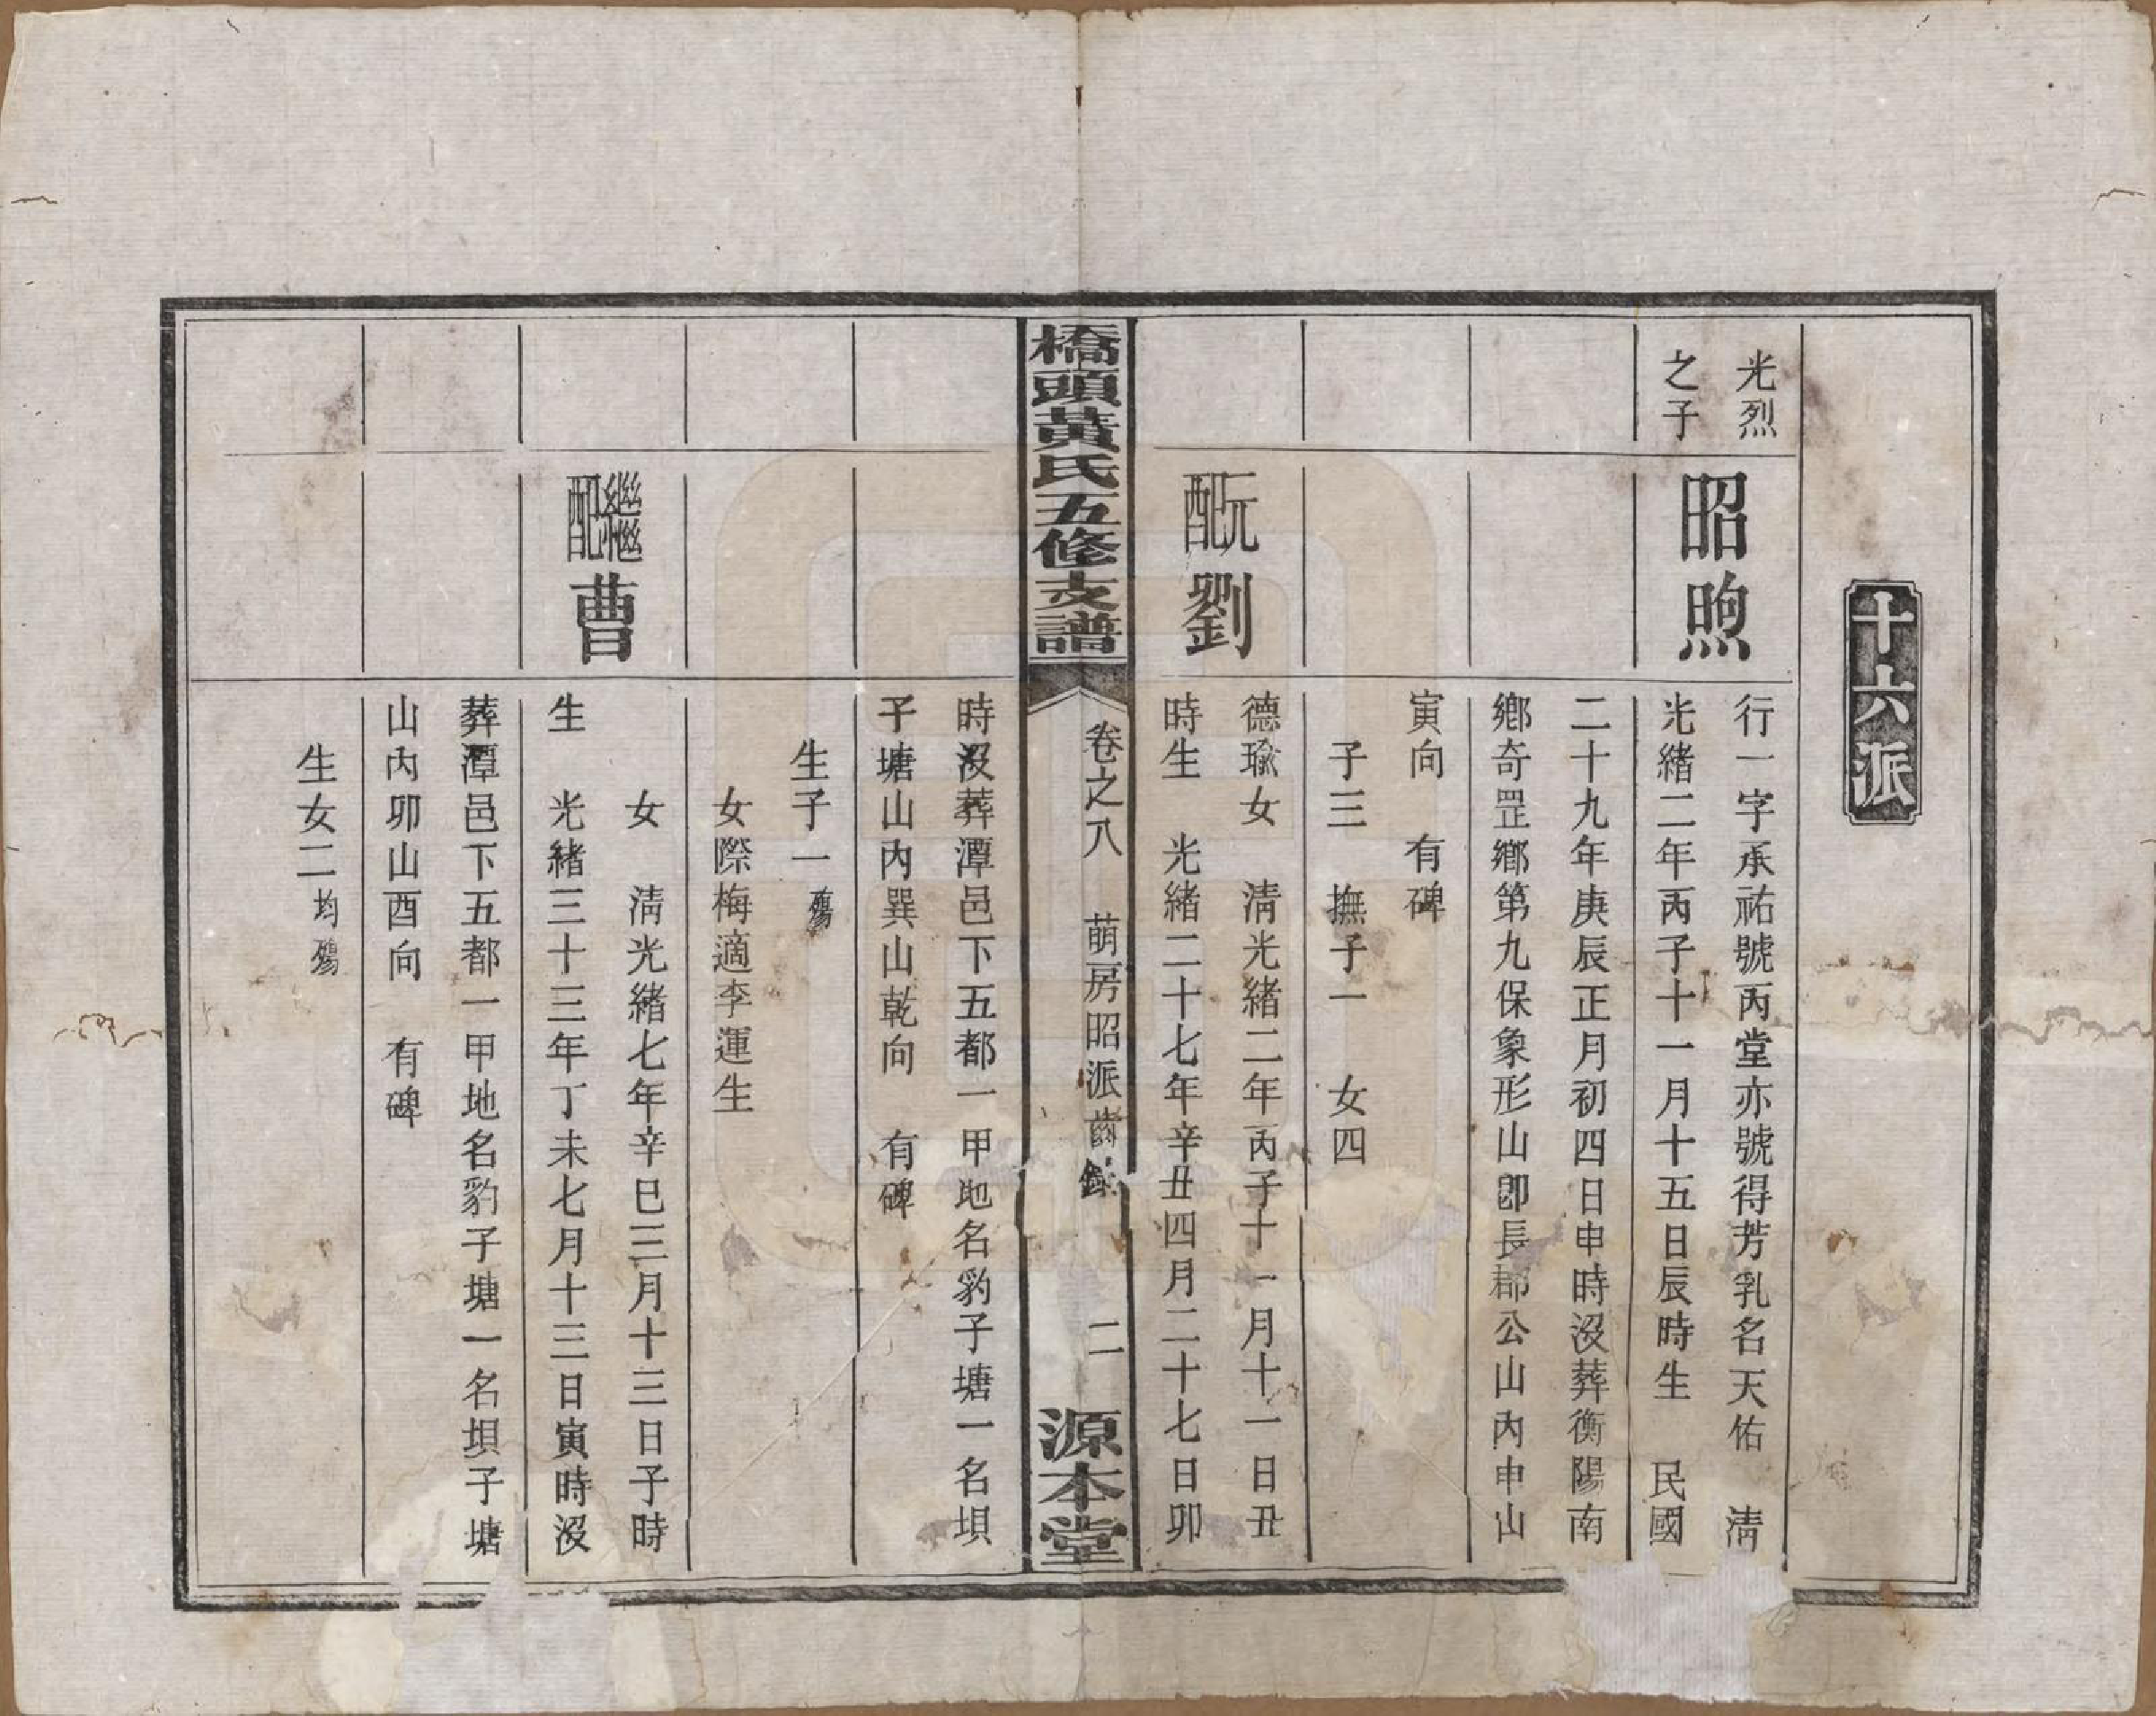 十六派
光烈
之子
昭煦
行一字承祐號丙堂亦號得芳乳名天佑　清
光緒二年丙子十一月十五日辰時生　民國
二十九年庚辰正月初四日申時沒葬衡陽南
鄉奇罡鄉第九保象形山即長郡公山內申山
寅向　有碑
子三　撫子一　女四
元配劉
德瑜女　清光緒二年丙子十一月十一日丑
時生　光緒二十七年辛丑四月二十七日卯
橋頭黃氏五修支譜　卷之八　萌房昭派齒錄　二　源本堂
時沒葬潭邑下五都一甲地名豹子塘一名垻
子塘山內巽山乾向　有碑
生子一殤
女際梅適李運生
繼配曹
女　清光緒七年辛巳三月十三日子時
生　光緒三十三年丁未七月十三日寅時沒
葬潭邑下五都一甲地名豹子塘一名垻子塘
山內卯山酉向　有碑
生女二均殤